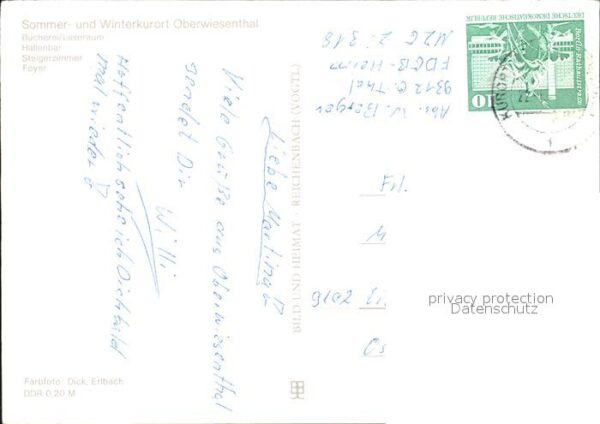 Sommer- und Winterkurort Oberwiesenthal
Bücherei/Leseraum
Hallenbar
Steigerzimmer
Foyer
Liebe Martina!
Viele Grüße aus Oberwiesenthal
sendet Dir
Willi
Hoffentlich sehe ich Dich bald
mal wieder!
Farbfoto: Dick, Erlbach
DDR 0,20 M
BILD UND HEIMAT · REICHENBACH (VOGTL)
Abs. W. Berger
9312 O.-Thal
FDGB-Heim
M2G 2. 318
DEUTSCHE DEMOKRATISCHE REPUBLIK
Berlin · Rathausstraße
10
KURORT
Frl.
M
privacy protection
Datenschutz